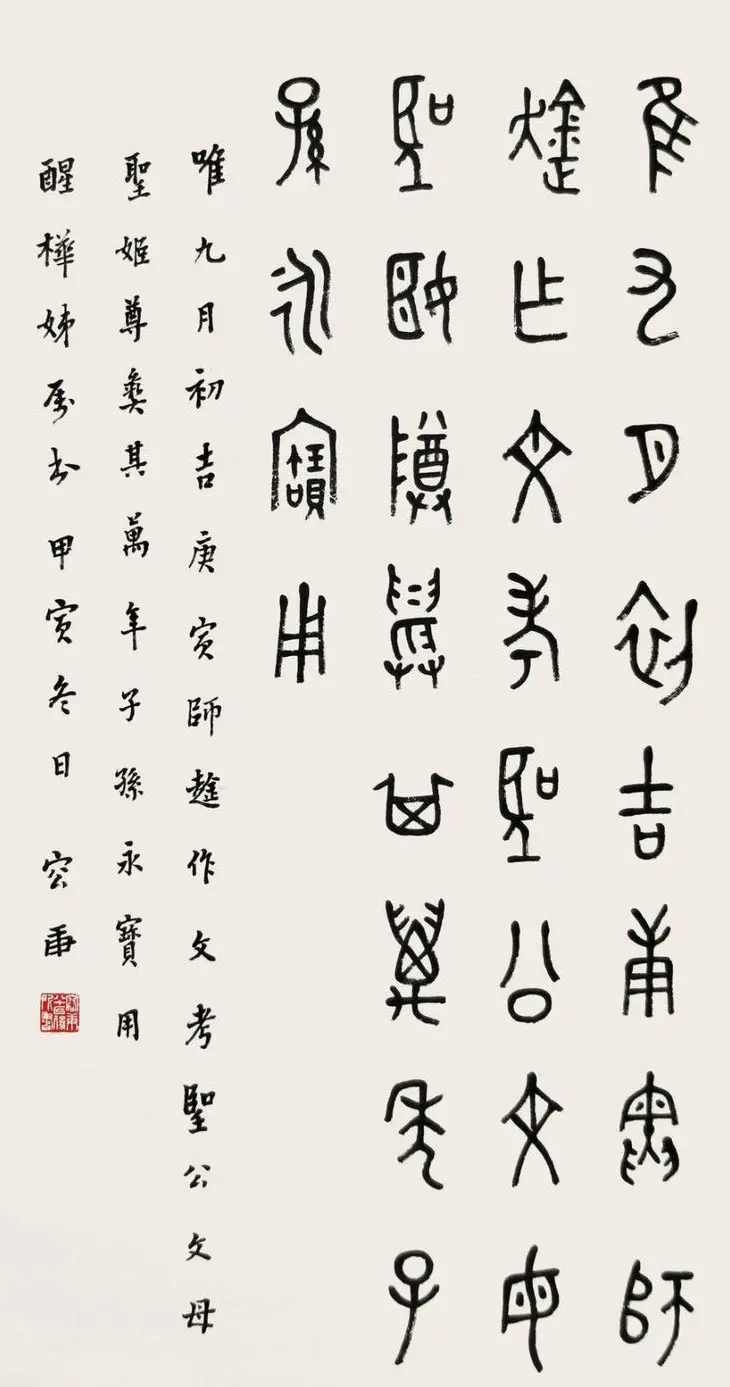 隹九月初吉庚寅師
趛乍文考聖公文母
聖姬尊彝其萬年子
孫永寶用
唯九月初吉庚寅師趛作文考聖公文母
聖姬尊彝其萬年子孫永寶用
醒樺姊屬書 甲寅冬日 容庚